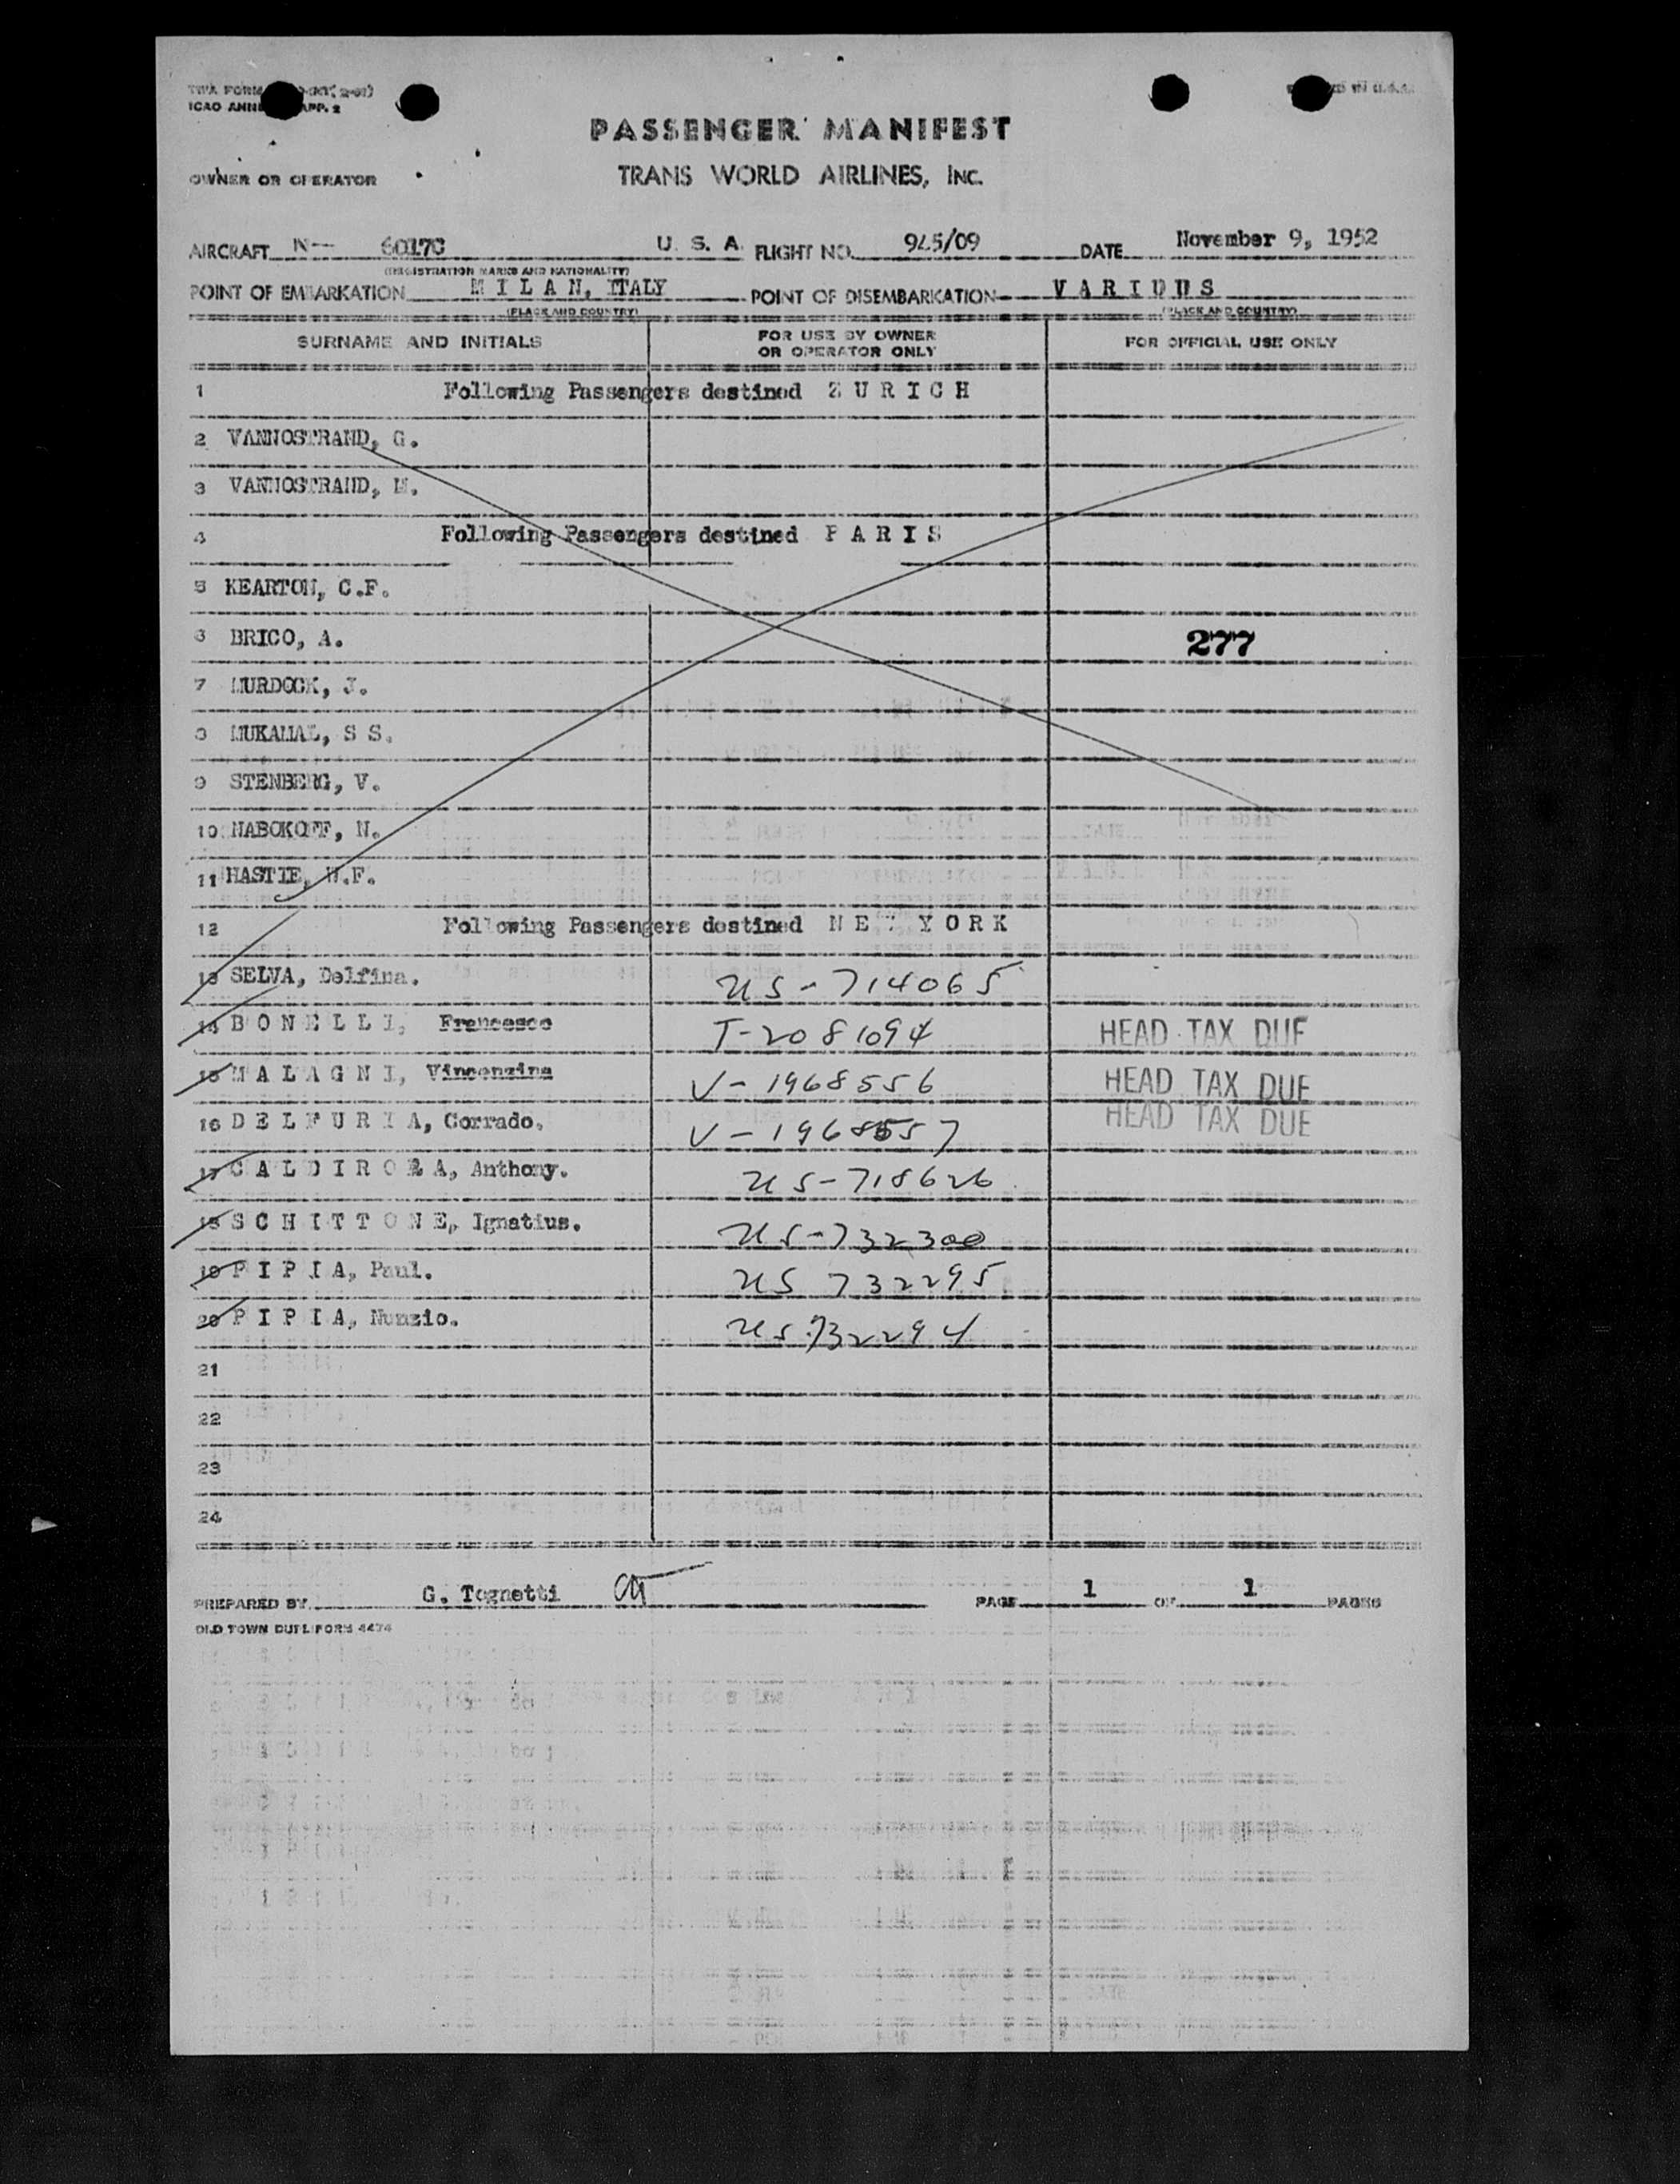 TWA FORM
ICAO ANNE APP. 2
PASSENGER MANIFEST
OWNER OR OPERATOR
TRANS WORLD AIRLINES, INC.
AIRCRAFT N-- 6017C U. S. A. FLIGHT NO. 945/09 DATE November 9, 1952
(REGISTRATION MARKS AND NATIONALITY)
POINT OF EMBARKATION M I L A N, ITALY POINT OF DISEMBARKATION V A R I O U S
(PLACE AND COUNTRY) (PLACE AND COUNTRY)
SURNAME AND INITIALS FOR USE BY OWNER OR OPERATOR ONLY FOR OFFICIAL USE ONLY
1 Following Passengers destined Z U R I C H
2 VANNOSTRAND, G.
3 VANNOSTRAND, M.
4 Following Passengers destined P A R I S
5 KEARTON, C.F.
6 BRICO, A. 277
7 MURDOCK, J.
8 MUKAMAL, S S.
9 STENBERG, V.
10 NABOKOFF, N.
11 HASTIE, W.F.
12 Following Passengers destined N E W YORK
13 SELVA, Delfina. US-714065
14 B O N E L L I, Francesco T-2081094 HEAD TAX DUE
15 M A L A G N I, Vincenzina V-1968556 HEAD TAX DUE
16 D E L F U R I A, Corrado. V-1968557 HEAD TAX DUE
17 C A L D I R O L A, Anthony. US-718626
18 S C H I T T O N E, Ignatius. US-732300
19 P I P I A, Paul. US 732295
20 P I P I A, Nunzio. US 732294
21
22
23
24
PREPARED BY G. Tognetti PAGE 1 OF 1 PAGES
OLD TOWN DUPLIFORM 4474